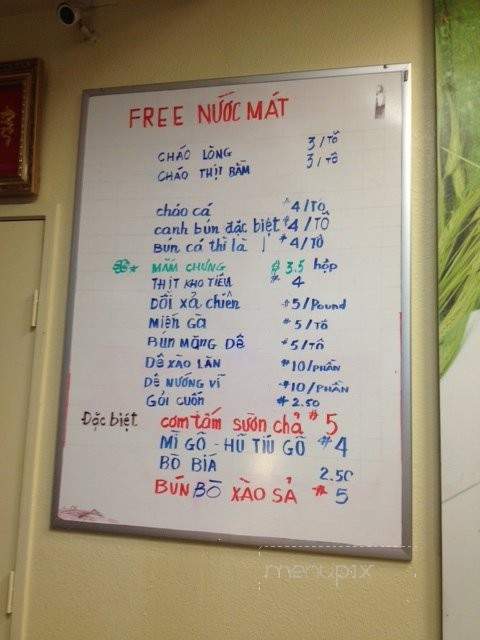 FREE NƯỚC MÁT
CHÁO LÒNG 3/TÔ
CHÁO THỊT BẰM 3/TÔ
cháo cá $4/TÔ
canh bún đặc biệt $4/TÔ
Bún cá thì là $4/TÔ
MẮM CHƯNG $3.5 hộp
THỊT KHO TIÊU $4
DỒI xả chiên $5/Pound
Miến Gà $5/TÔ
BÚN MĂNG DÊ $5/TÔ
DÊ XÀO LĂN $10/PHẦN
DÊ NƯỚNG VĨ $10/PHẦN
GỎI CUỐN $2.50
Đặc biệt cơm tấm sườn chả $5
MÌ GÕ - HŨ TIÚ GÕ $4
BÒ BIÁ 2.50
BÚN BÒ XÀO SẢ $5
menupix